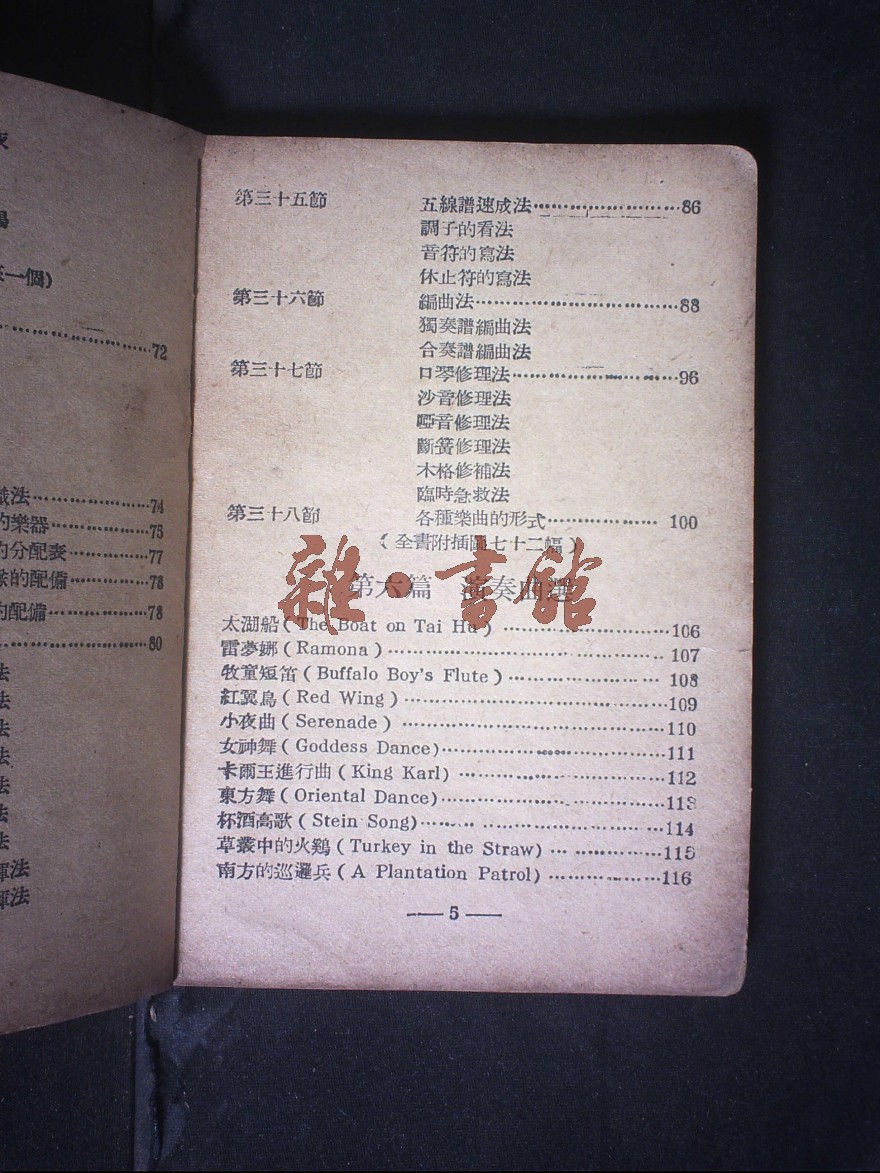 一個)
72
織法74
的樂器75
的分配表77
的配備78
配備78
80
法
法
法
法
法
法
法
法
法
第三十五節 五線譜速成法86
調子的看法
音符的寫法
休止符的寫法
第三十六節 編曲法88
獨奏譜編曲法
合奏譜編曲法
第三十七節 口琴修理法96
沙音修理法
啞音修理法
斷簧修理法
木格修補法
臨時急救法
第三十八節 各種樂曲的形式 100
(全書附插圖七十二幅)
雜·書館
第六篇 演奏曲選
太湖船(The Boat on Tai Hu)106
雷夢娜(Ramona)107
牧童短笛(Buffalo Boy's Flute)108
紅翼鳥(Red Wing)109
小夜曲(Serenade)110
女神舞(Goddess Dance)111
卡爾王進行曲(King Karl)112
東方舞(Oriental Dance)113
杯酒高歌(Stein Song)114
草叢中的火鷄(Turkey in the Straw)115
南方的巡邏兵(A Plantation Patrol)116
— 5 —